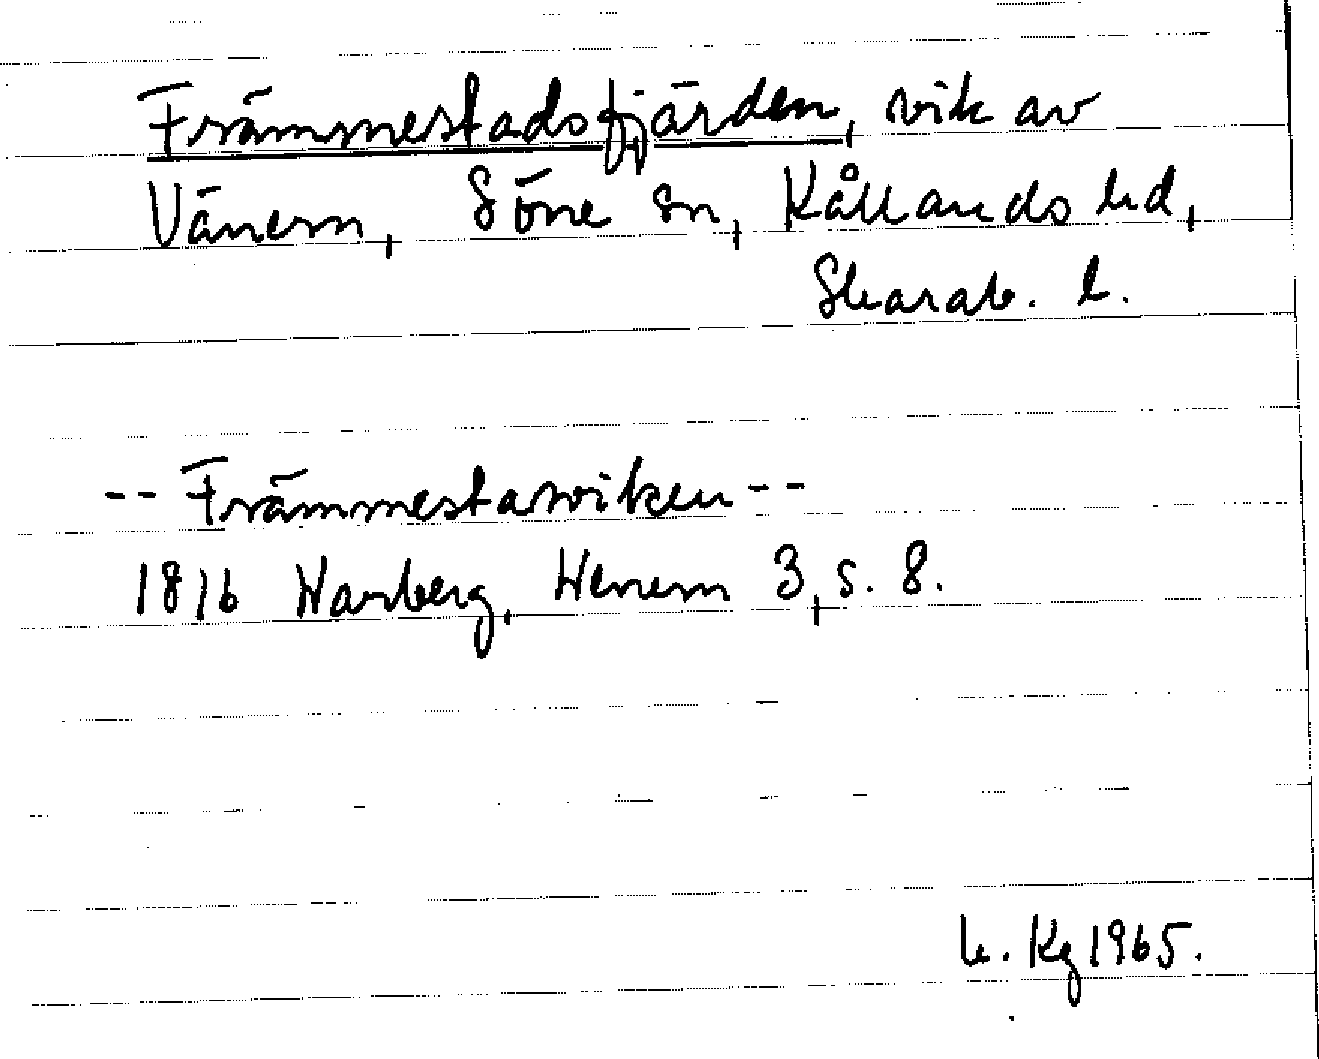 Främmestadsfjärden, vik av
Vänern, Söne sn, Kållands hd,
Skarab. l.
-- Främmestaviken --
1816 Warberg, Wenern 3, s. 8.
k. Kg 1965.